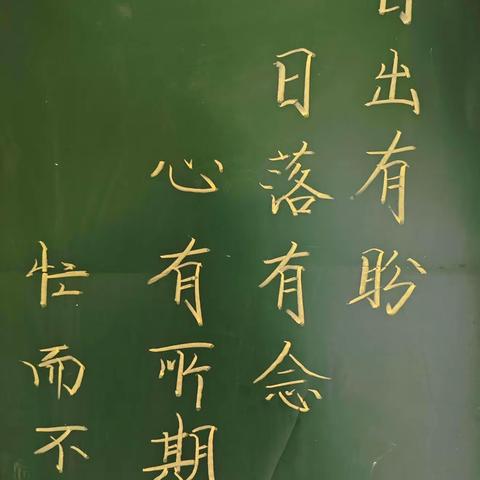 日出有盼
日落有念
心有所期
忙而不